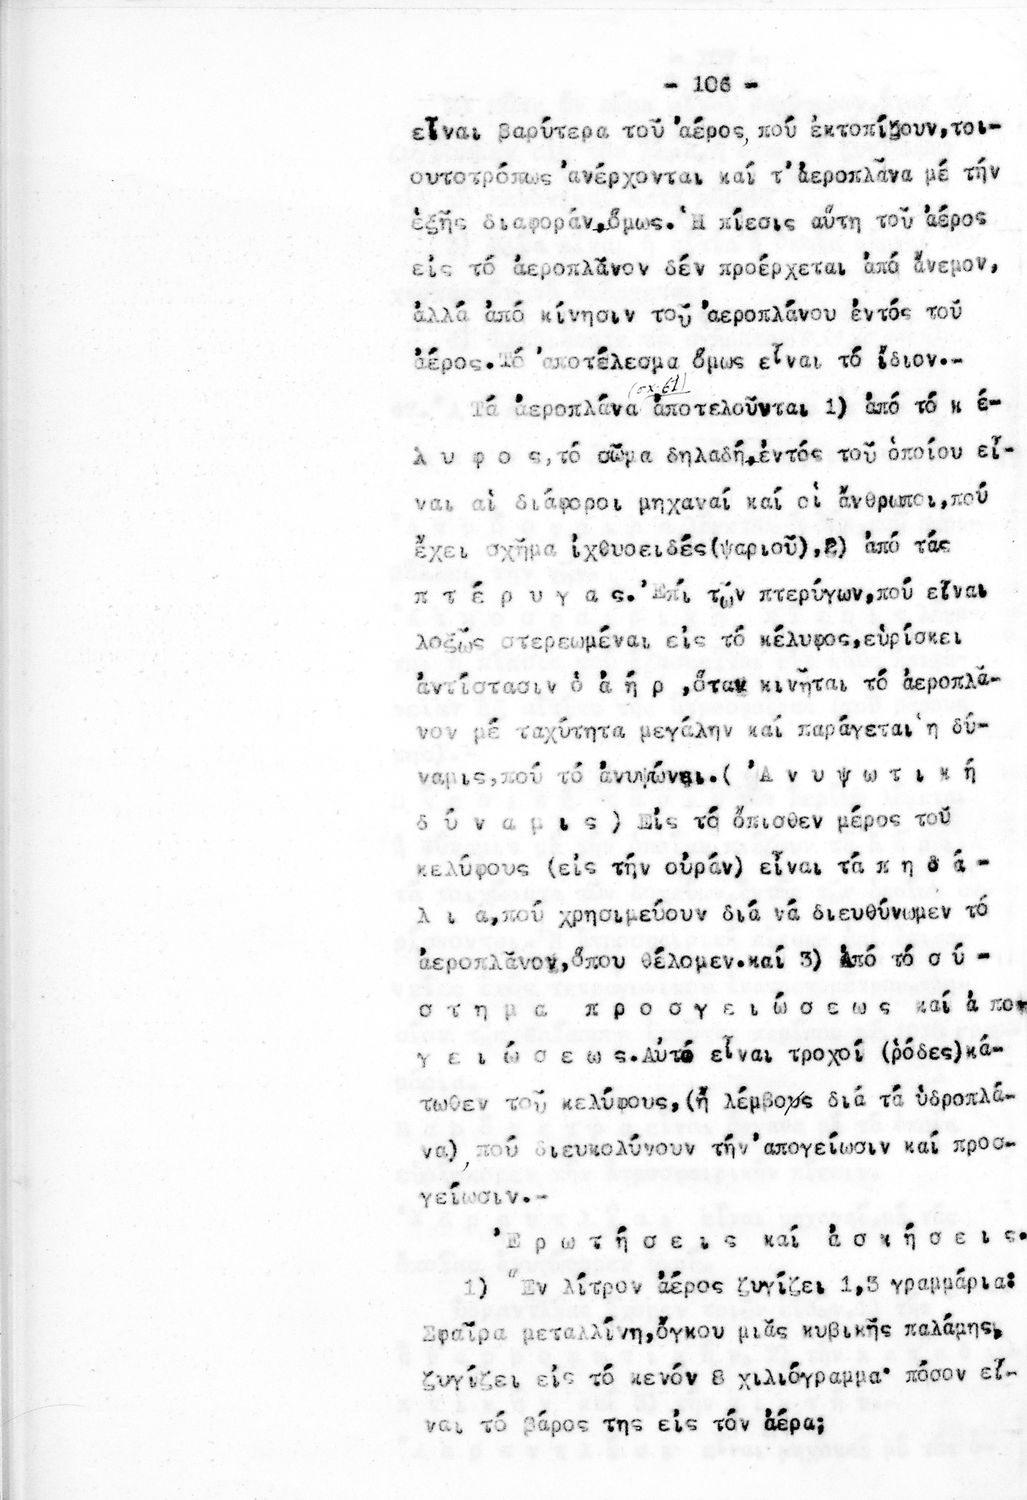 - 106 -
εἶναι βαρύτερα τοῦ ἀέρος, πού ἐκτοπίζουν,τοι-
ουτοτρόπως ἀνέρχονται καί τ'ἀεροπλᾶνα μέ τήν
ἑξῆς διαφοράν,ὅμως. Ἡ πίεσις αὕτη τοῦ ἀέρος
εἰς τό ἀεροπλᾶνον δέν προέρχεται ἀπό ἄνεμον,
ἀλλά ἀπό κίνησιν τοῦ ἀεροπλάνου ἐντός τοῦ
ἀέρος.Τό ἀποτέλεσμα ὅμως εἶναι τό ἴδιον.-
(σχ.61)
Τά ἀεροπλάνα ἀποτελοῦνται 1) ἀπό τό κ έ-
λ υ φ ο ς,τό σῶμα δηλαδή,ἐντός τοῦ ὁποίου εἶ-
ναι αἱ διάφοροι μηχαναί καί οἱ ἄνθρωποι,πού
ἔχει σχῆμα ἰχθυοειδές(ψαριοῦ),2) ἀπό τάς
π τ έ ρ υ γ α ς. Ἐπί τῶν πτερύγων,πού εἶναι
λοξῶς στερεωμέναι εἰς τό κέλυφος,εὑρίσκει
ἀντίστασιν ὁ ἀ ή ρ ,ὅταν κινῆται τό ἀεροπλᾶ-
νον μέ ταχύτητα μεγάλην καί παράγεται ἡ δύ-
ναμις,πού τό ἀνυψώνει.( Ἀ ν υ ψ ω τ ι κ ή
δ ύ ν α μ ι ς ) Εἰς τό ὄπισθεν μέρος τοῦ
κελύφους (εἰς τήν οὐράν) εἶναι τά π η δ ά -
λ ι α,πού χρησιμεύουν διά νά διευθύνωμεν τό
ἀεροπλᾶνον,ὅπου θέλομεν.καί 3) ἀπό τό σ ύ -
σ τ η μ α π ρ ο σ γ ε ι ώ σ ε ω ς καί ἀ πο
γ ε ι ώ σ ε ω ς.Αὐτό εἶναι τροχοί (ρόδες)κά-
τωθεν τοῦ κελύφους,(ἤ λέμβους διά τά ὑδροπλά-
να), πού διευκολύνουν τήν ἀπογείωσιν καί προσ-
γείωσιν.-
Ἐ ρ ω τ ή σ ε ι ς καί ἀ σ κ ή σ ε ι ς.
1) Ἕν λίτρον ἀέρος ζυγίζει 1,3 γραμμάρια:
Σφαῖρα μεταλλίνη,ὄγκου μιᾶς κυβικῆς παλάμης,
ζυγίζει εἰς τό κενόν 8 χιλιόγραμμα· πόσον εἶ-
ναι τό βάρος της εἰς τόν ἀέρα;